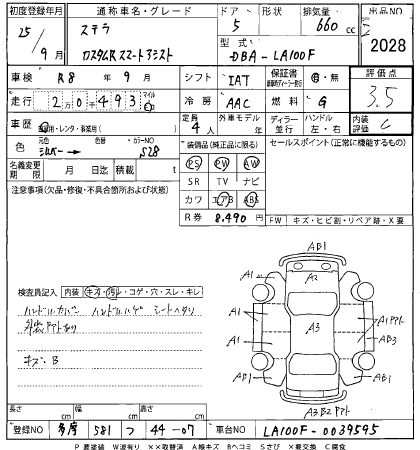 初度登録年月 通称車名・グレード ドア 形状 排気量 出品NO
25/9月 ステラ 5 660 cc 2028
カスタムR スマートアシスト 型式 DBA-LA100F
車検 R8年9月 シフト IAT 保証書 有・無 評価点
走行 2万0千493 マイル 冷房 AAC 燃料 G 3.5
車歴 自家用・レンタ・事業用( ) 定員 4人 外車モデル 年 ディーラー 並行 ハンドル 左・右 内装評価 C
色 元色 シルバー → 色替 カラーNO S28 装備品(純正品に限る) セールスポイント(正常に機能するもの)
名義変更期限 月 日迄 積載 t PS PW AW
注意事項(欠品・修復・不具合箇所および状態) SR TV ナビ
カワ エアB ABS
R券 8,490円 FW キズ・ヒビ割・リペア跡・X要
AB1
A1 A2 A1
検査員記入 内装 キズ・汚レ・コゲ・穴・スレ・キレ
ハンドルカバー ハンドルハゲ シートヘタリ
A1 A3 A1
外装 アト
A1 AB3
キズ・B
AB1 AB1
A3 B2
長さ cm 幅 cm 高さ cm
登録NO 多摩 581 つ 44-07 車台NO LA100F-0039595
P 要塗装 W波有り ××取替済 A線キズ Bヘコミ Sさび ×要交換 C腐食